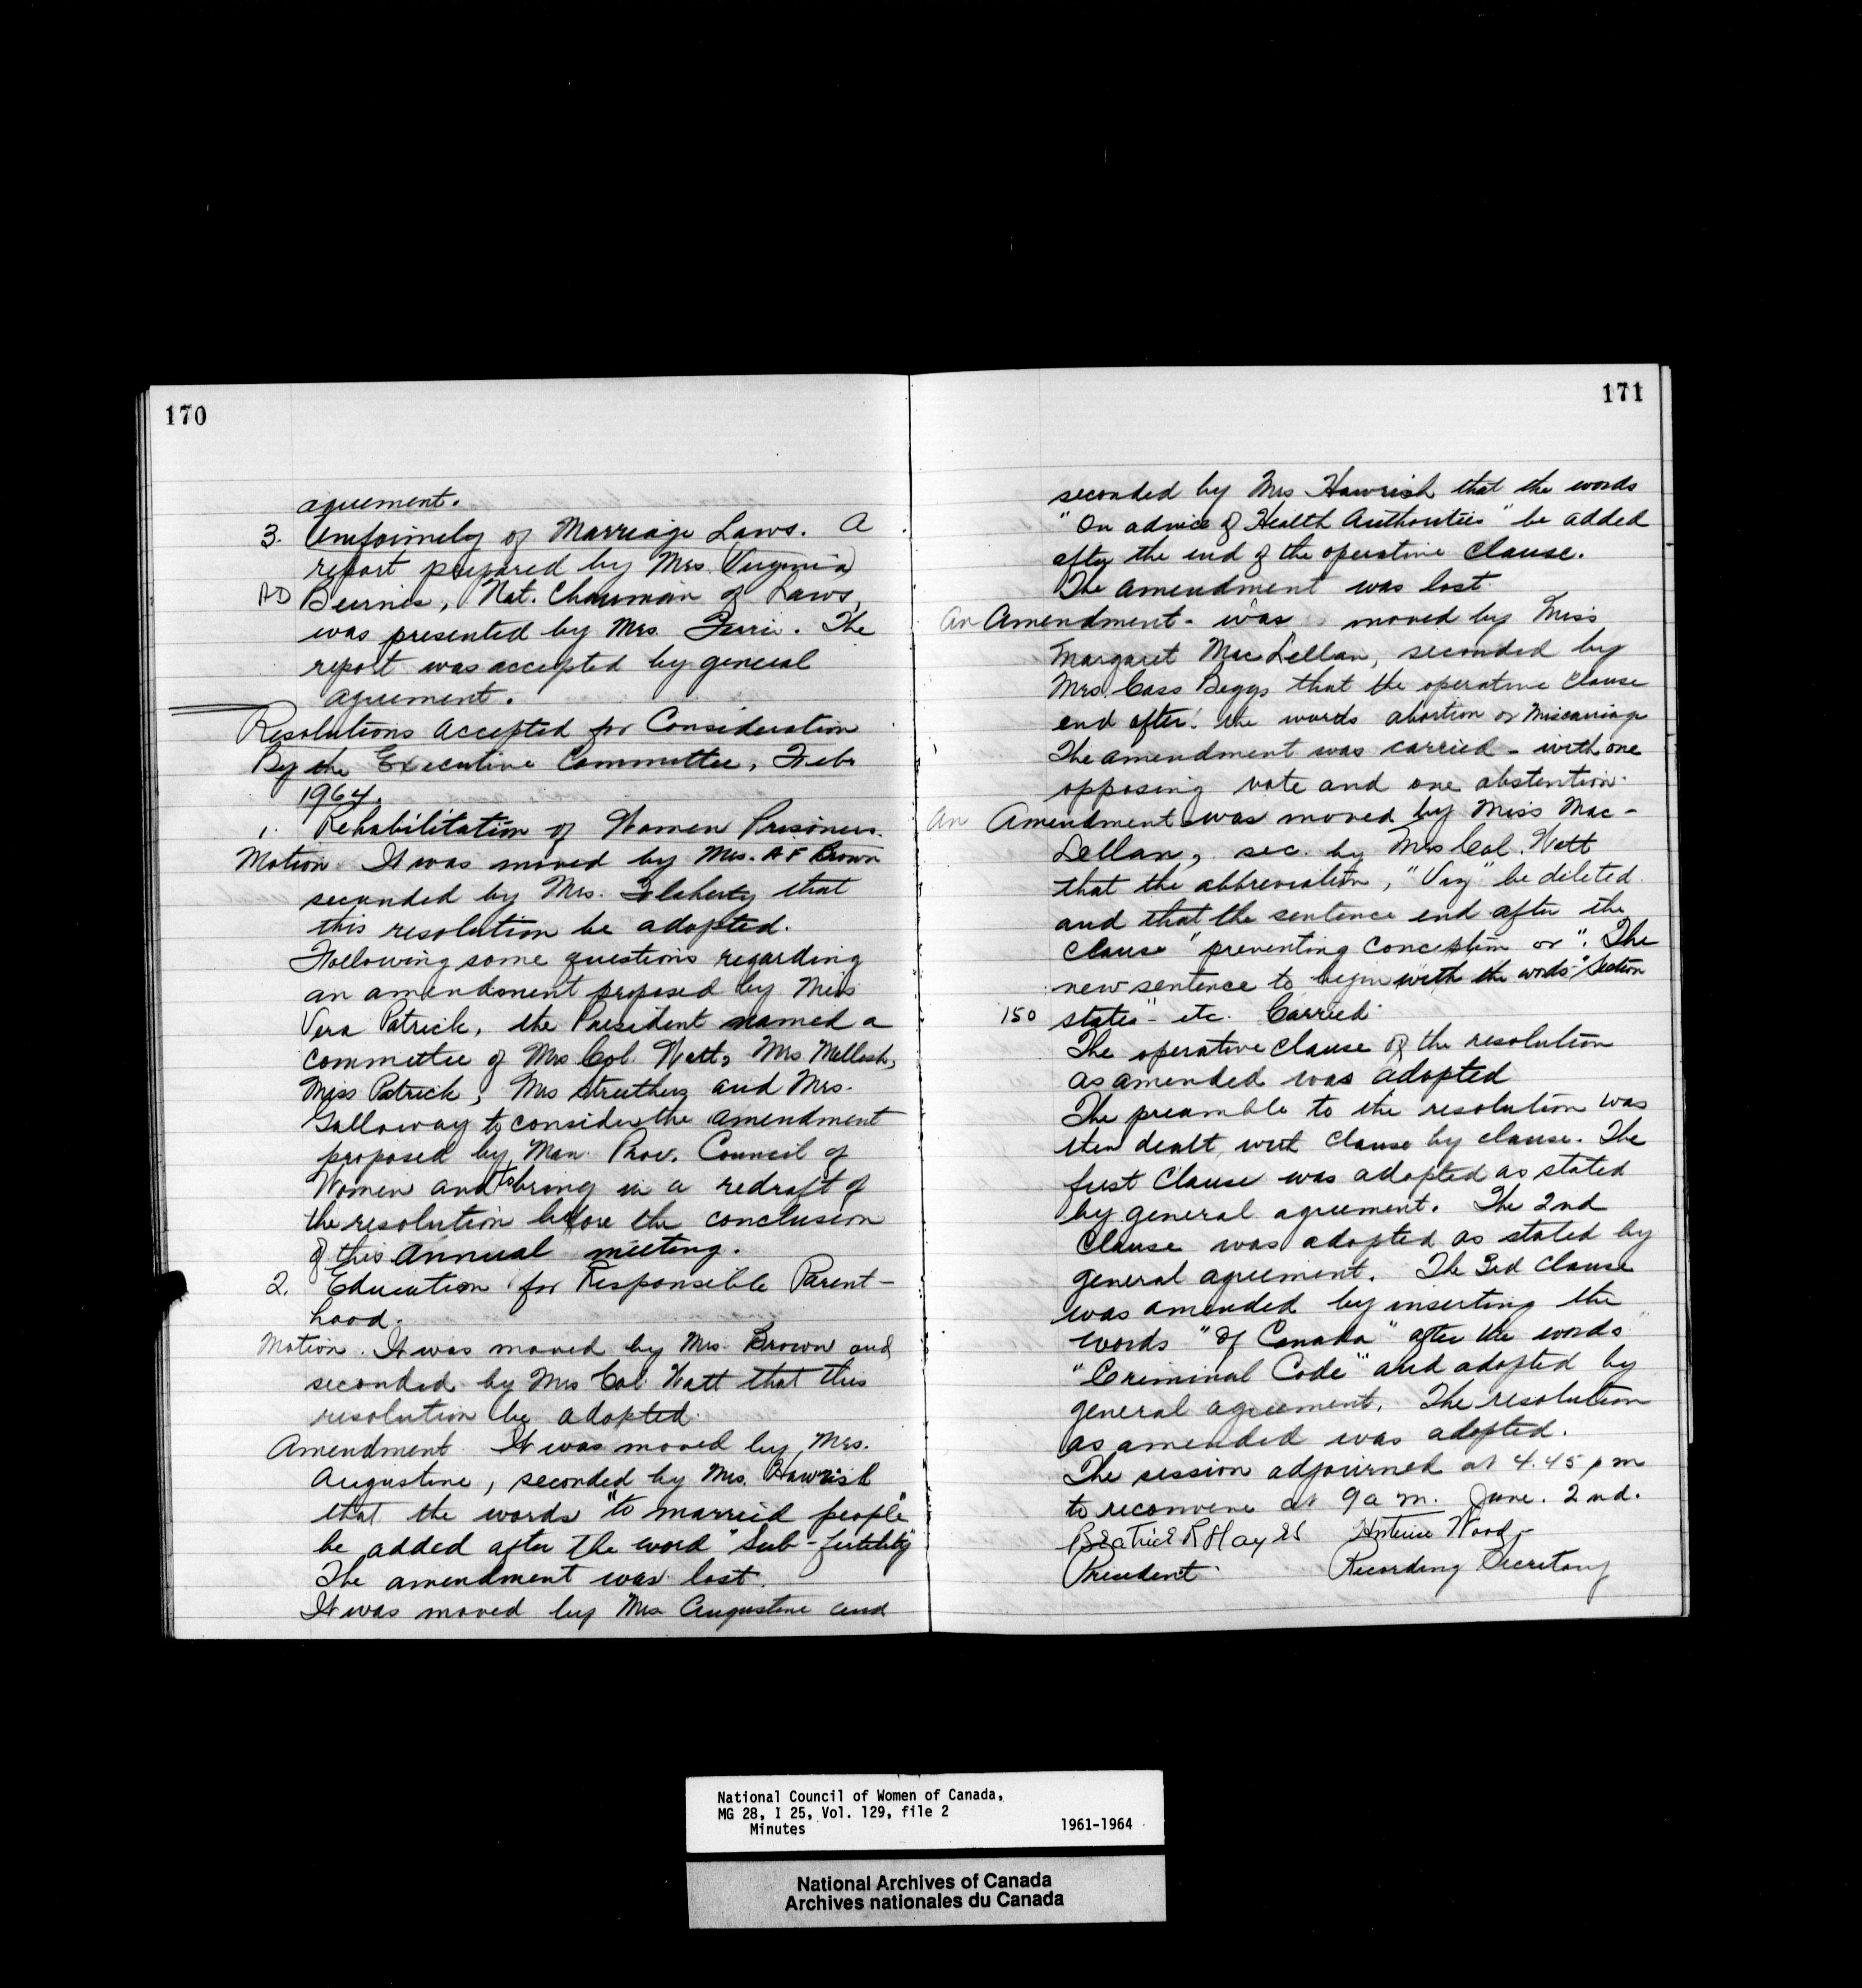 170
agreement.
3. Uniformity of Marriage Laws. A
report prepared by Mrs. (Virginia)
AD Beirnes, Nat. Chairman of Laws,
was presented by Mrs. Ferris. The
report was accepted by general
agreement.
Resolutions Accepted for Consideration
By the Executive Committee, Feb.
1964.
1. Rehabilitation of Women Prisoners.
Motion It was moved by Mrs. A F Brown
seconded by Mrs. Flaherty that
this resolution be adopted.
Following some questions regarding
an amendment proposed by Miss
Vera Patrick, the President named a
committee of Mrs Col. Watt, Mrs. Mellosh,
Miss Patrick, Mrs Struthers and Mrs.
Galloway to consider the amendment
proposed by Man. Prov. Council of
Women and to bring in a redraft of
the resolution before the conclusion
of this annual meeting.
2. Education for Responsible Parent-
hood.
Motion. It was moved by Mrs. Brown and
seconded by Mrs Col. Watt that this
resolution be adopted.
Amendment It was moved by Mrs.
Augustine, seconded by Mrs. Hawrish
that the words "to married people"
be added after the word "Sub-fertility"
The amendment was lost.
It was moved by Mrs Augustine and
171
seconded by Mrs Hawrish that the words
"On advice of Health Authorities" be added
after the end of the operative clause.
The amendment was lost.
An Amendment - was moved by Miss
Margaret MacLellan, seconded by
Mrs. Cass Beggs that the operative clause
end after the words abortion or miscarriage
The amendment was carried - with one
opposing vote and one abstention.
An Amendment was moved by Miss Mac-
Lellan, sec. by Mrs Col. Watt
that the abbreviation, be deleted
and that the sentence end after the
clause "preventing conception or". The
new sentence to begin with the words "Section
150 states" - etc. Carried.
The operative clause of the resolution
as amended was adopted
The preamble to the resolution was
then dealt with clause by clause. The
first clause was adopted as stated
by general agreement. The 2nd
Clause was adopted as stated by
general agreement. The 3rd Clause
was amended by inserting the
words "of Canada" after the words
"Criminal Code" and adopted by
general agreement. The resolution
as amended was adopted.
The session adjourned at 4.45 p m
to reconvene at 9 a m. June. 2nd.
Beatrice R Hayes Wood
President Recording Secretary
National Council of Women of Canada,
MG 28, I 25, Vol. 129, file 2
Minutes 1961-1964
National Archives of Canada
Archives nationales du Canada